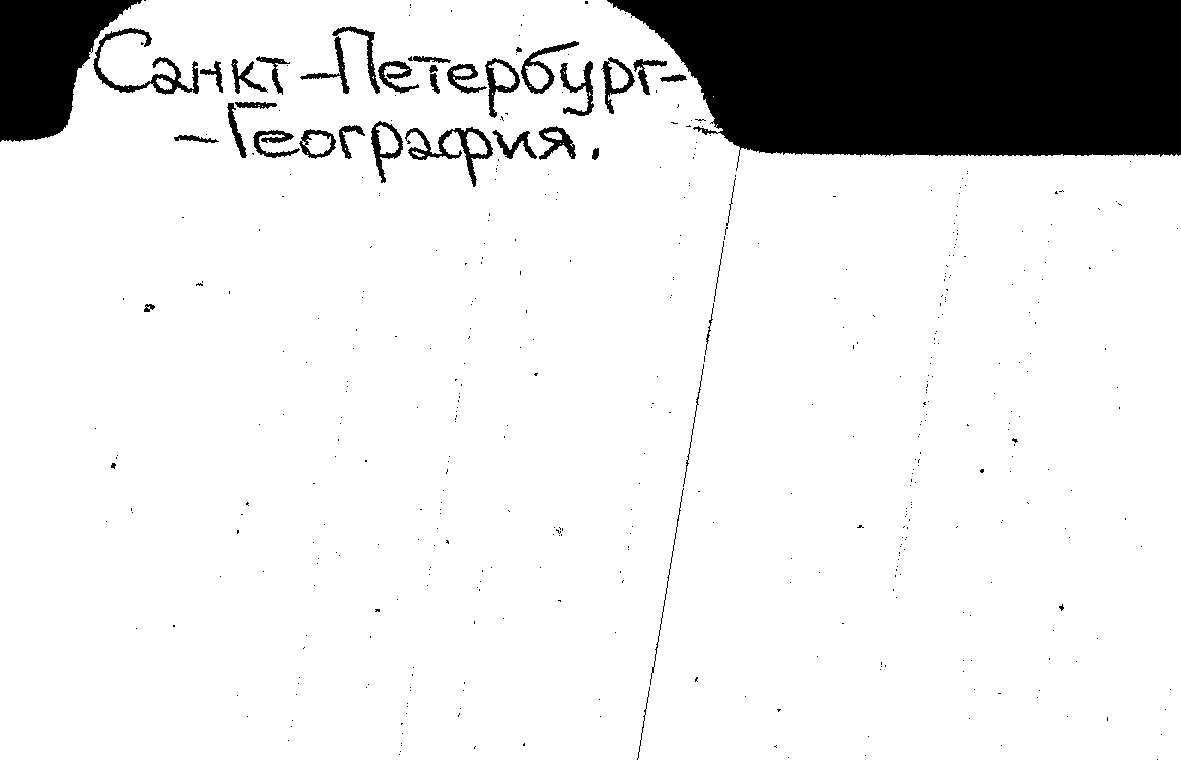 Санкт-Петербург-
-География.